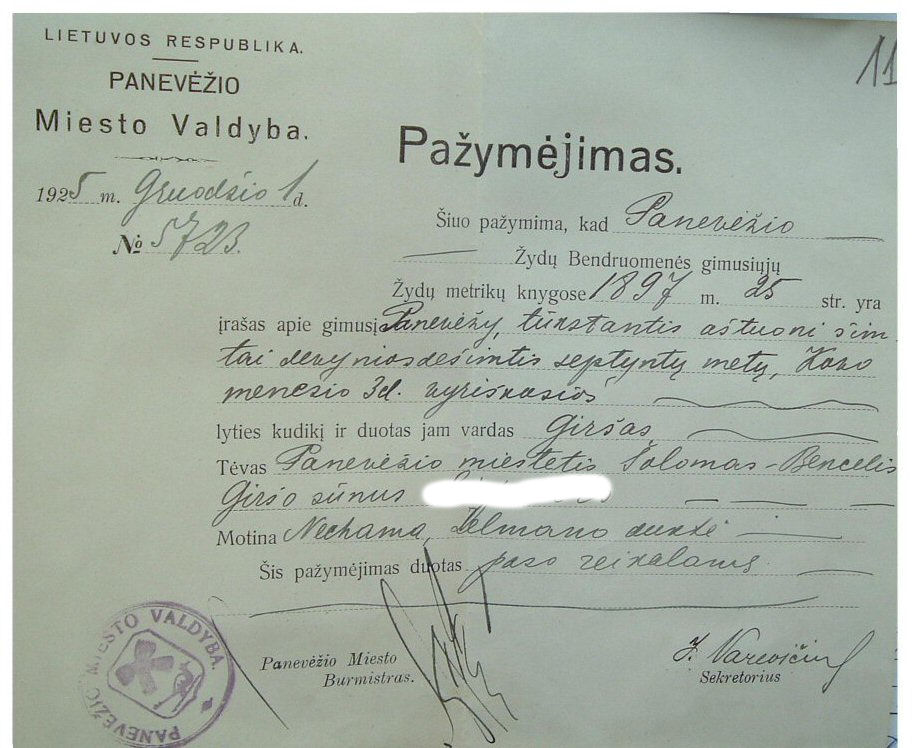 LIETUVOS RESPUBLIKA.
PANEVĖŽIO
Miesto Valdyba.
1925 m. Gruodžio 1 d.
№ 5723.
11
Pažymėjimas.
Šiuo pažymima, kad Panevėžio
Žydų Bendruomenės gimusiųjų
Žydų metrikų knygose 1897 m. 25 str. yra
įrašas apie gimusį Panevėžy, tūkstantis aštuoni šim
tai devyniosdešimtis septyntų metų, Kovo
menesio 3d. vyriskosios
lyties kudikį ir duotas jam vardas Giršas
Tėvas Panevėžio miestetis Šolomas-Bencelis
Giršo sūnus
Motina Nechama, Zelmano duktė
Šis pažymėjimas duotas paso reikalams
Panevėžio Miesto
Burmistras.
J. Varevičius
Sekretorius
PANEVĖŽIO MIESTO VALDYBA.